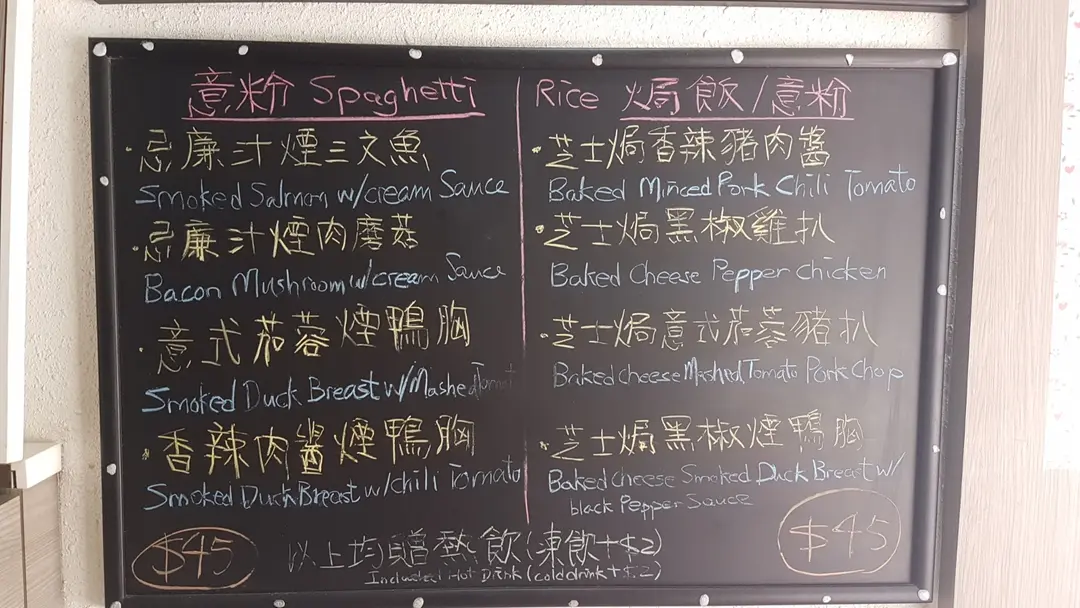 意粉 Spaghetti
·忌廉汁煙三文魚
Smoked Salmon w/cream Sauce
·忌廉汁煙肉磨菇
Bacon Mushroom w/cream Sauce
·意式茄蓉煙鴨胸
Smoked Duck Breast w/Mashed Tomat
·香辣肉醬煙鴨胸
Smoked Duck Breast w/chili Tomato
$45
Rice 焗飯/意粉
·芝士焗香辣豬肉醬
Baked Minced Pork Chili Tomato
·芝士焗黑椒雞扒
Baked Cheese Pepper chicken
·芝士焗意式茄蓉豬扒
Baked cheese Mashed Tomato Pork Chop
·芝士焗黑椒煙鴨胸
Baked Cheese Smoked Duck Breast w/
black Pepper Sauce
$45
以上均贈熱飲(凍飲+$2)
Included Hot Drink (cold drink+$2)